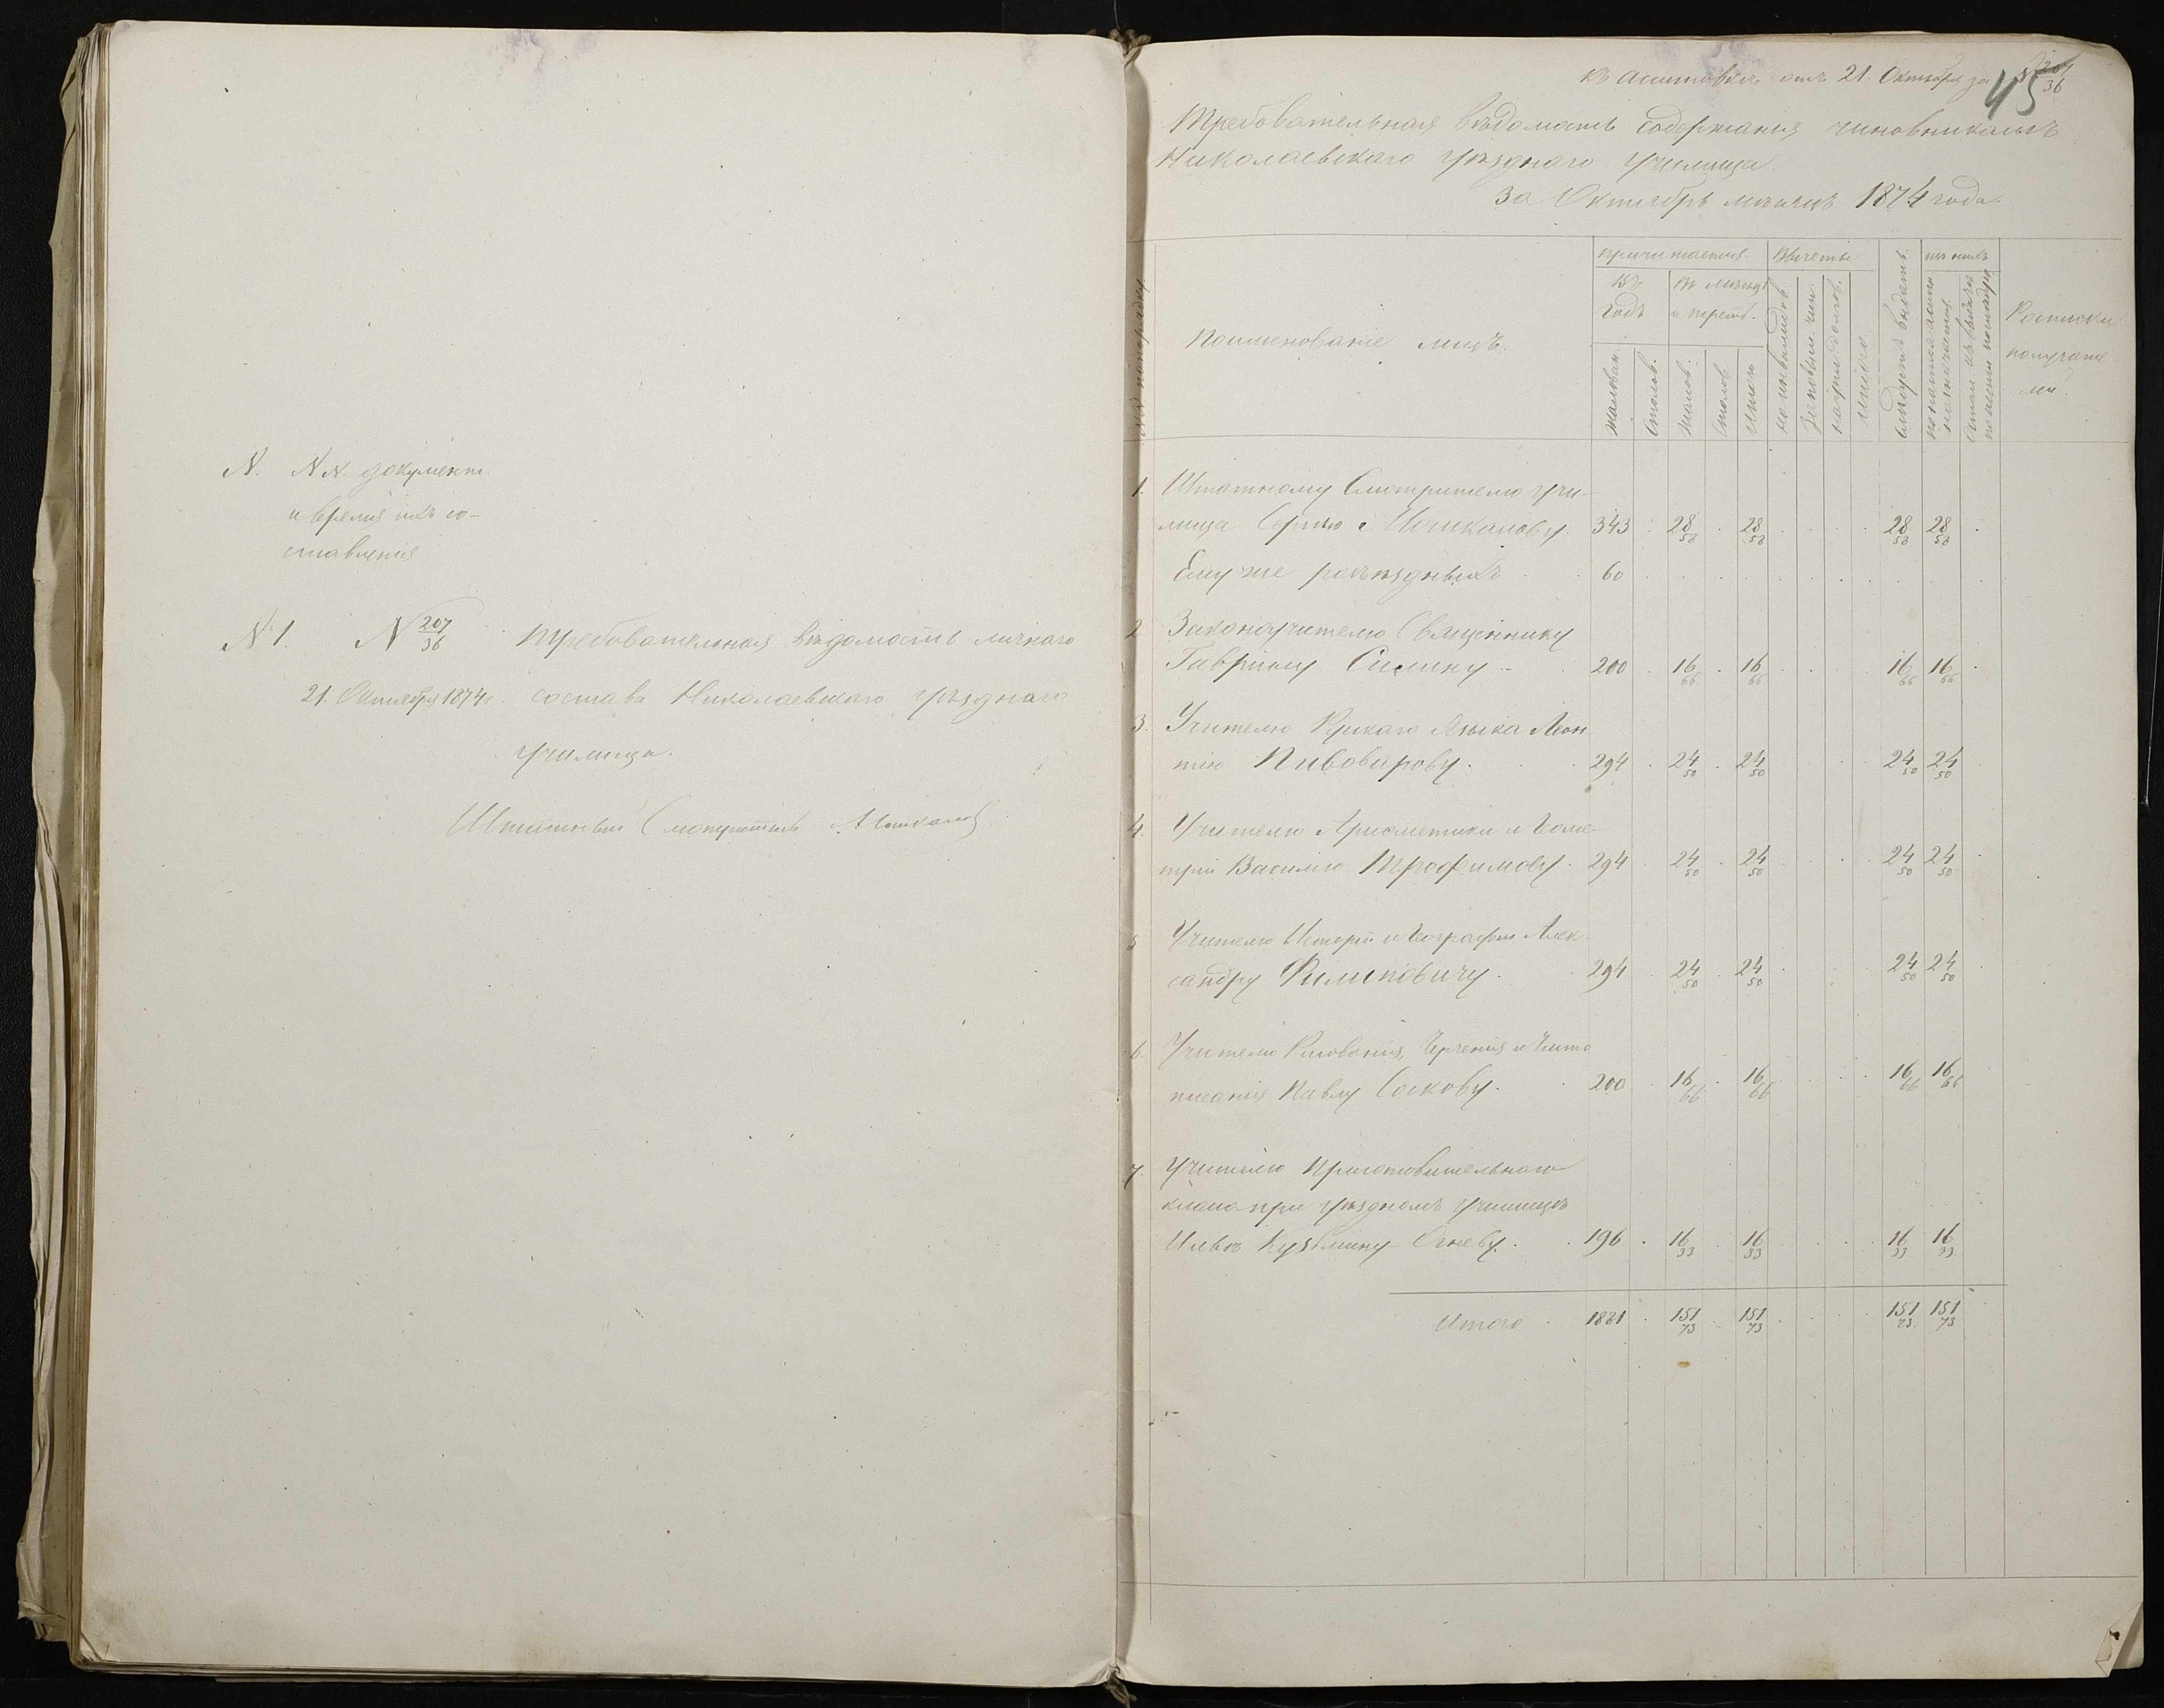 N. NN. документ.
и время ихъ со-
ставленія
N 1. N 207/36 Требовательная вѣдомость личнаго
21. Октября 1874 г. состава Николаевскаго уѣзднаго
училища.
Штатный Смотритель Мошкановъ
Къ ассигновкѣ отъ 21. Октября за N 207/36
45
Требовательная вѣдомость содержанія чиновникамъ
Николаевскаго уѣзднаго училища
за Октябрь мѣсяцъ 1874 года.
Наименованіе лицъ.
Причитается. Вычеты
Въ годъ
Въ мѣсяцъ и треть.
жалован. столов. жалов. столов. Итого
на инвалидов. итого
слѣдуетъ выдать.
изъ нихъ
Росписки
получате-
лей
1. Штатному Смотрителю учи-
лища Сергѣю Мошканову 343 28 58 28 58 28 58 28 58
Ему же разъѣздныхъ 60
2. Законоучителю Священнику
Гавріилу 200 16 66 16 66 16 66 16 66
3. Учителю Русскаго Языка Леон-
тію Пивоварову. 294 24 50 24 50 24 50 24 50
4. Учителю Арифметики и Геоме-
тріи Василію Трофимову. 294 24 50 24 50 24 50 24 50
5 Учителю Исторіи и Географіи Алек-
сандру Филиповичу. 294 24 50 24 50 24 50 24 50
6. Учителю Рисованія, Черченія и Чисто
писанія Павлу Соскову. 200 16 66 16 66 16 66 16 66
7. Учителю Приготовительнаго
класса при уѣздномъ Училищѣ
Ильѣ Кузьмину Огневу. 196 16 33 16 33 16 33 16 33
Итого 1881 151 73 151 73 151 73 151 73